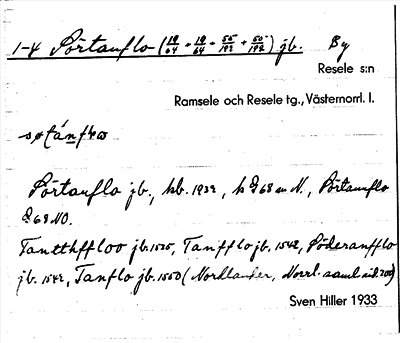 1-4 Sörtanflo (19/64 + 19/64 + 55/192 + 50/192) jb. By
Resele s:n
Ramsele och Resele tg., Västernorrl. l.
Sörtanflo jb., kb. 1932, k 968 m N., Sörtannflo
968 NO.
Tanthffloo jb. 1535, Tanfflo jb. 1542, Söderanfflo
jb. 1542, Tanflo jb. 1550 (Nordlander, Norrl. saml. sid. 200)
Sven Hiller 1933